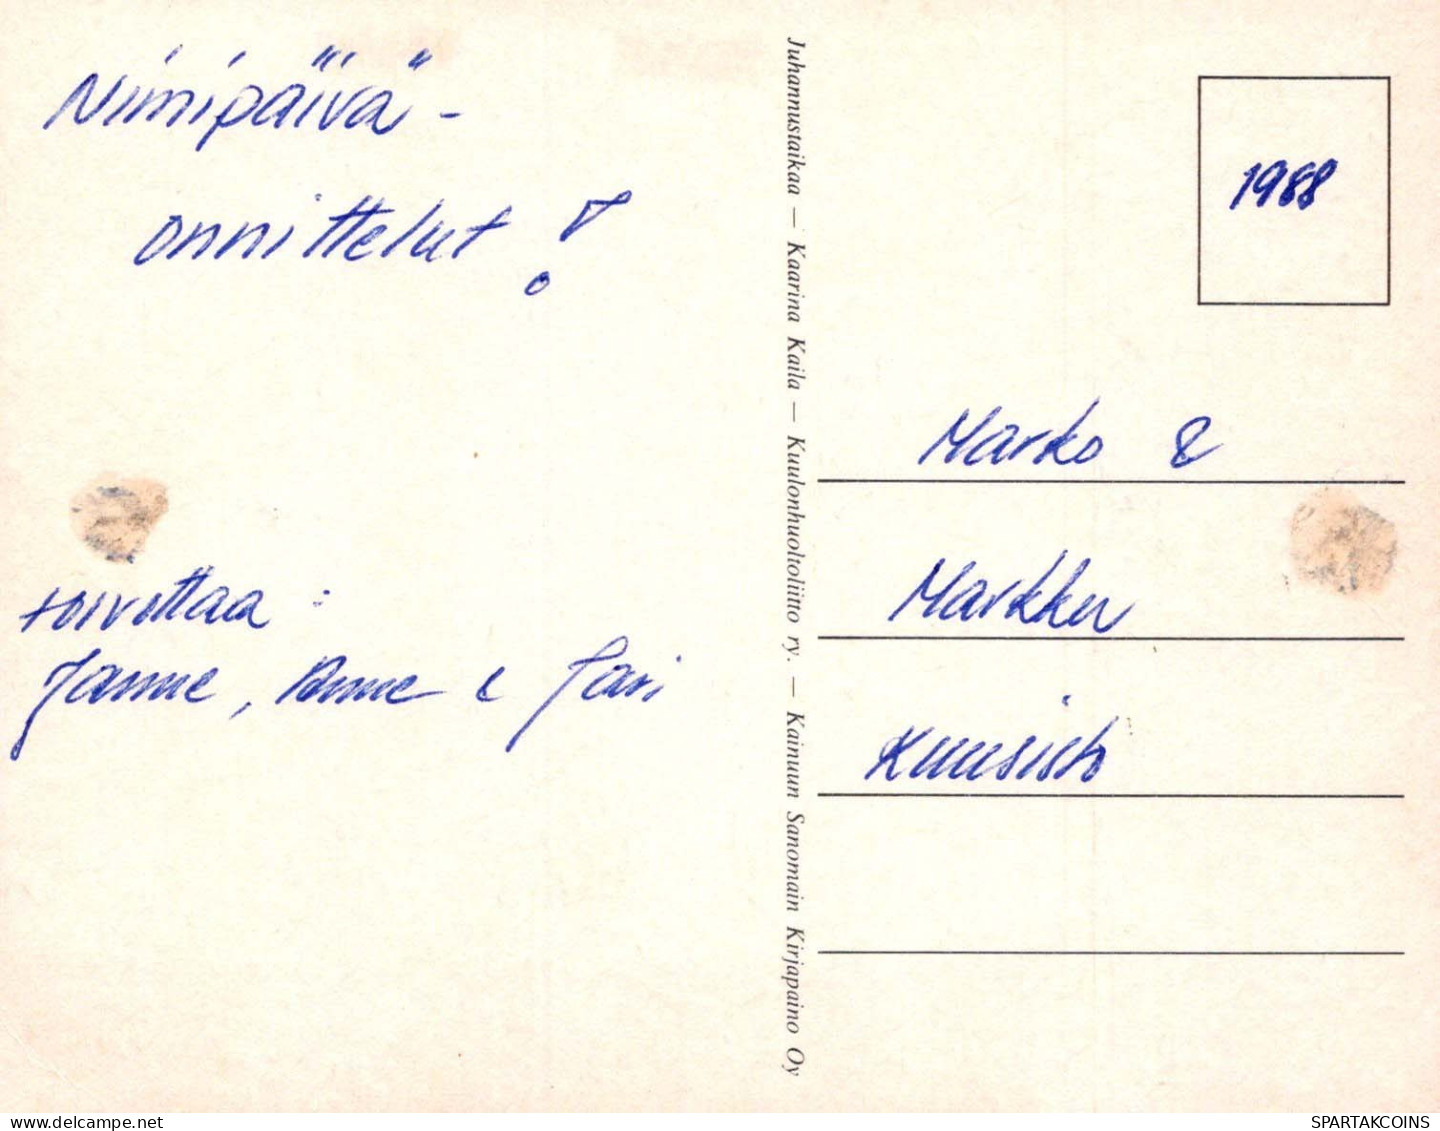 Nimipäivä-
onnittelut!
toivottaa:
Janne, Anne & Jari
Juhannustaikaa — Kaarina Kaila — Kuulonhuoltoliitto ry. — Kainuun Sanomain Kirjapaino Oy
1988
Marko &
Markku
Kuusisto
delcampe.net
SPARTAKCOINS